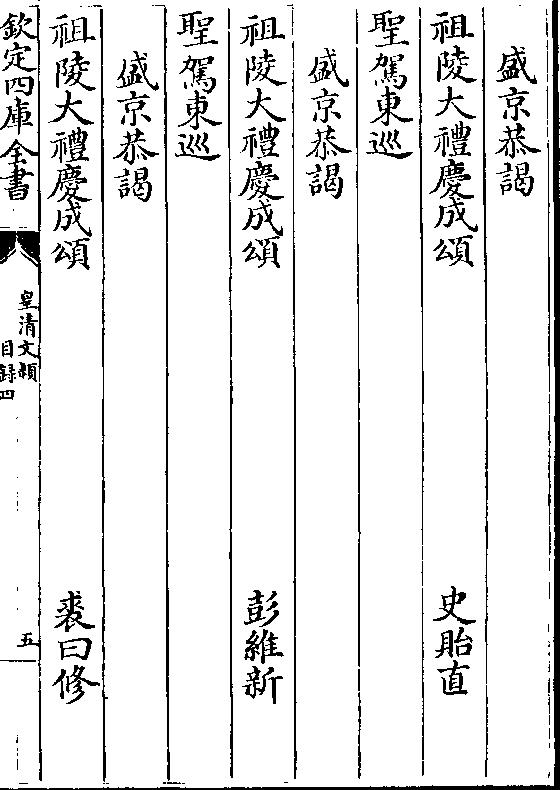 盛京恭謁
祖陵大禮慶成頌 史貽直
聖駕東巡
盛京恭謁
祖陵大禮慶成頌 彭維新
聖駕東巡
盛京恭謁
祖陵大禮慶成頌 裘曰修
欽定四庫全書
皇清文頴
目録四
五